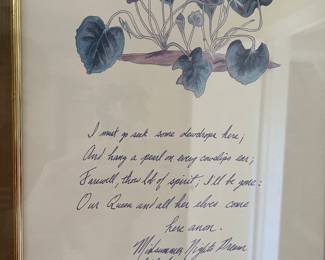 I must go seek some dewdrops here,
And hang a pearl on every cowslips ear;
Farewell, thou lob of spirit; I'll be gone:
Our Queen and all her elves come
here anon.
Midsummer Nights Dream